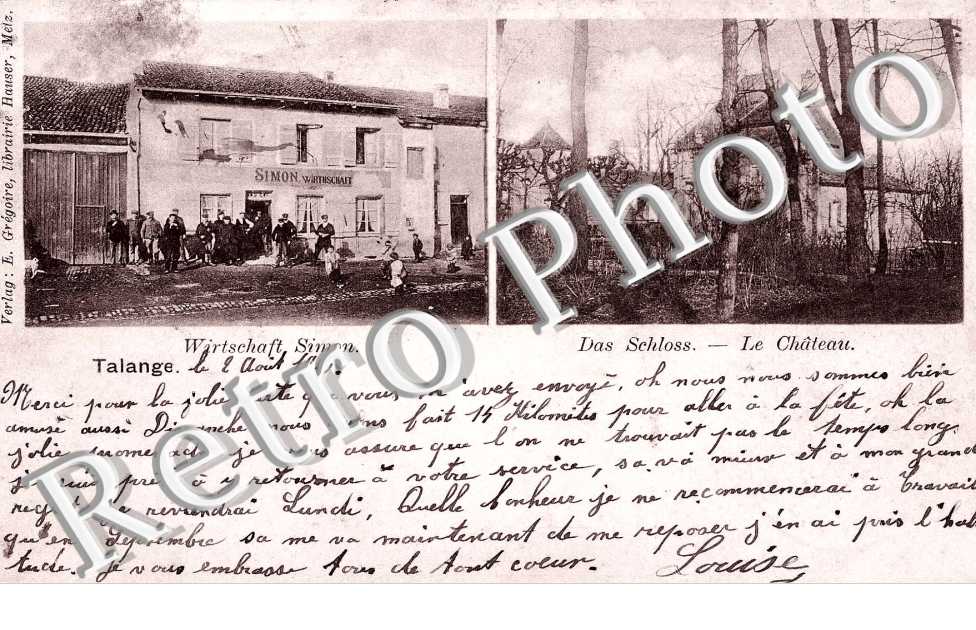 Verlag : E. Grégoire, librairie Hauser, Metz.
SIMON, WIRTHSCHAFT
Retro Photo
Wirtschaft Simon.
Das Schloss. — Le Château.
Talange. le 2 Août
Merci pour la jolie carte que vous avez envoyé, oh nous nous sommes bien
amusé aussi Dimanche nous avons fait 14 Kilomètes pour aller à la fête, oh la
jolie promenade je vous assure que l'on ne trouvait pas le temps long,
je suis prêt à y retourner à votre service, sa va mieux et à mon grand
regret je reviendrai Lundi, Quelle bonheur je ne recommencerai à travail
qu'en Septembre sa me va maintenant de me reposer j'en ai pris l'habi
tude. Je vous embrasse tous de tout coeur. Louise